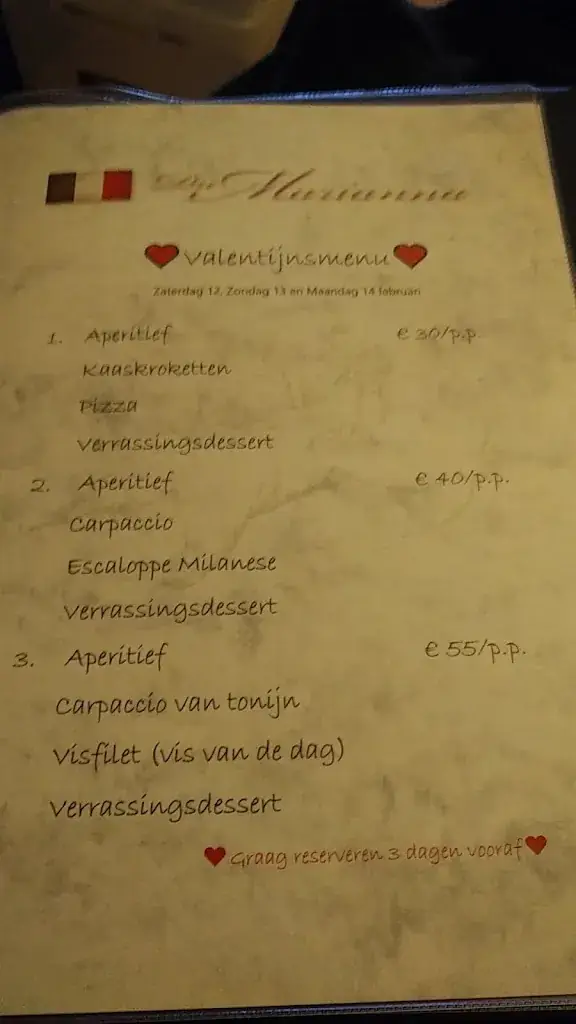 Marianna
Valentijnsmenu
Zaterdag 12, Zondag 13 en Maandag 14 februari
1. Aperitief € 30/p.p.
Kaaskroketten
Pizza
Verrassingsdessert
2. Aperitief € 40/p.p.
Carpaccio
Escaloppe Milanese
Verrassingsdessert
3. Aperitief € 55/p.p.
Carpaccio van tonijn
Visfilet (vis van de dag)
Verrassingsdessert
Graag reserveren 3 dagen vooraf